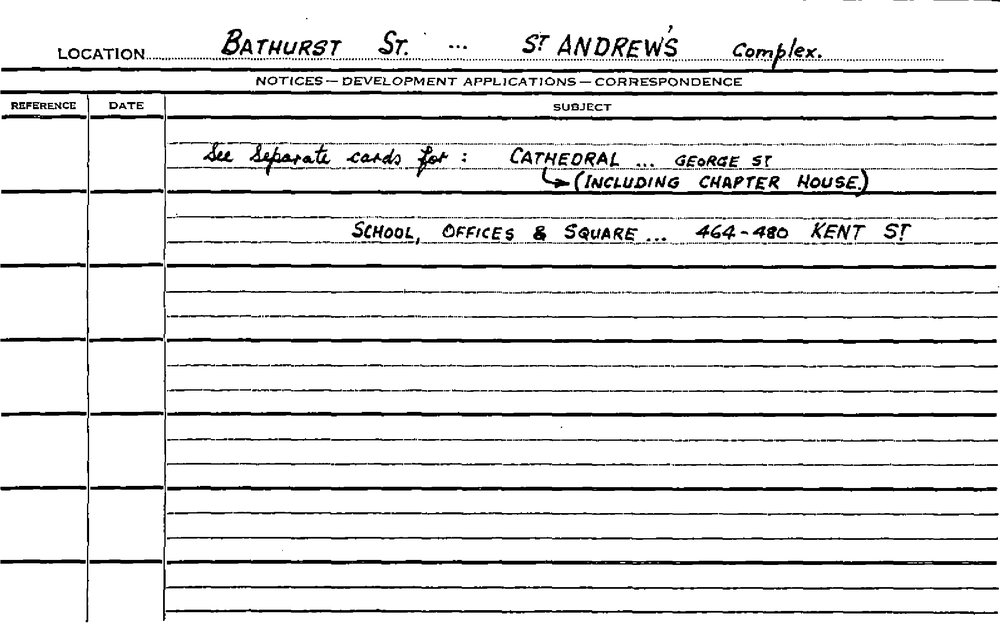 LOCATION BATHURST ST. ... ST ANDREW'S Complex.
NOTICES — DEVELOPMENT APPLICATIONS — CORRESPONDENCE
REFERENCE DATE SUBJECT
See Separate cards for : CATHEDRAL ... GEORGE ST
(INCLUDING CHAPTER HOUSE.)
SCHOOL, OFFICES & SQUARE ... 464-480 KENT ST